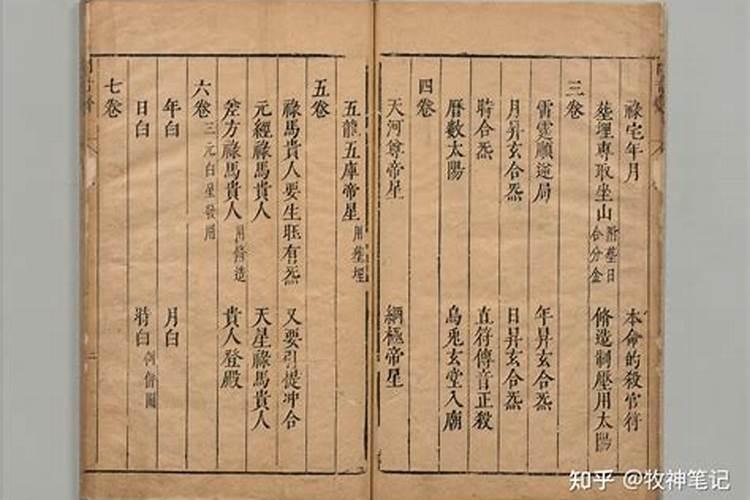 祿宅年月 本命的殺官符
塟埋專取坐山 附塟日合分金 脩造制壓用太陽
三卷
雷霆順逆局 年昇玄合炁
月昇玄合炁 日昇玄合炁
時合炁 直符傳音正殺
曆數太陽 烏兎玄堂入廟
四卷
天河尊帝星 綱極帝星
五龍五庫帝星 用塟埋
五卷
祿馬貴人要生旺有炁 又要引從冲合
元經祿馬貴人 天星祿馬貴人
差方祿馬貴人 用脩造 貴人登殿
六卷 三元白星發用
年白 月白
日白 時白
七卷
知乎 @牧神笔记